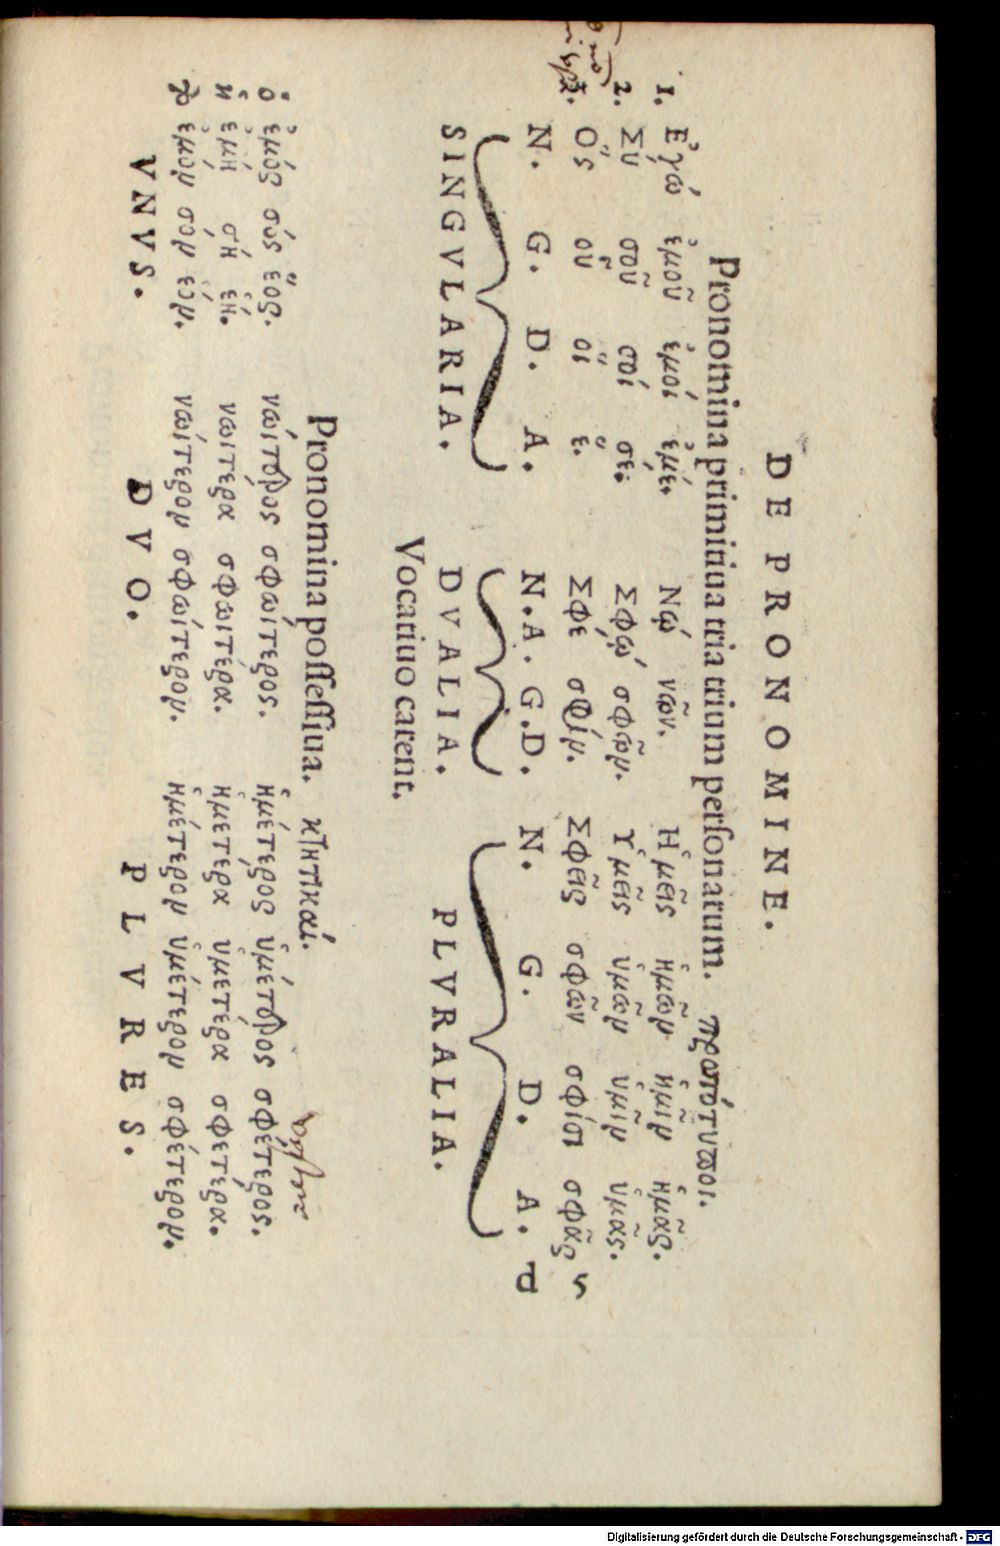 DE PRONOMINE.
Pronomina primitiua tria trium personarum. πρωτότυποι.
1. Ἐγώ ἐμοῦ ἐμοί ἐμέ. Νώ νῶν. Ἡμεῖς ἡμῶν ἡμῖν ἡμᾶς.
2. Σύ σοῦ σοί σε. Σφώ σφῶν. Ὑμεῖς ὑμῶν ὑμῖν ὑμας.
Ὅς οὗ οἱ ἑ. Σφε σφίν. Σφεῖς σφῶν σφίσι σφᾶς
N. G. D. A. N.A. G.D. N. G. D. A.
SINGVLARIA. DVALIA. PLVRALIA.
Vocatiuo carent.
Pronomina possessiua. κτητικαί.
ὁ ἐμός σός ἑός. νωίτερος σφωίτερος. ἡμέτερος ὑμέτερος σφέτερος.
ἡ ἐμή σή ἑή. νωιτερα σφωιτέρα. ἡμετερα ὑμετερα σφετερα.
τὸ ἐμόν σόν ἑόν. νωίτερον σφωίτερον. ἡμέτερον ὑμέτερον σφέτερον.
VNVS. DVO. PLVRES.
Digitalisierung gefördert durch die Deutsche Forschungsgemeinschaft - DFG